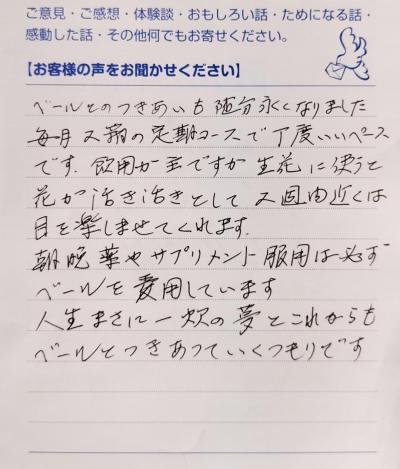 ご意見・ご感想・体験談・おもしろい話・ためになる話・
感動した話・その他何でもお寄せください。
【お客様の声をお聞かせください】
ベールとのつきあいも随分永くなりました
毎月2箱の定期コースで丁度いいペース
です。飲用が主ですが生花に使うと
花が活き活きとして2週間近くは
目を楽しませてくれます。
朝晩薬やサプリメント服用は必ず
ベールを愛用しています
人生まさに一炊の夢とこれからも
ベールとつきあっていくつもりです